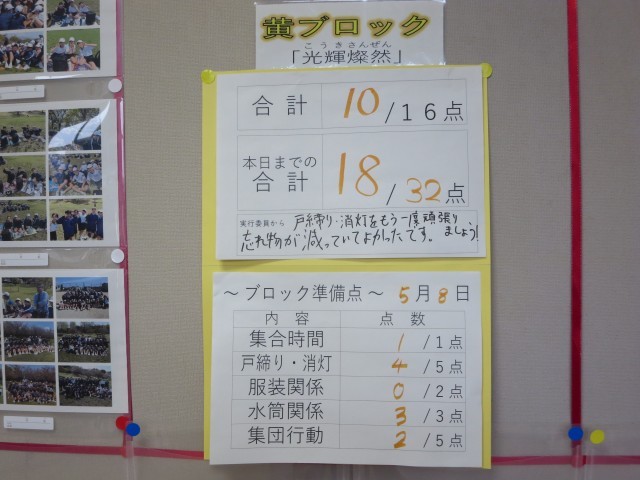 黄ブロック
こうきさんぜん
「光輝燦然」
合計 10/16点
本日までの
合計 18/32点
実行委員から 戸締り・消灯をもう一度頑張り
ましょう!
忘れ物が減っていてよかったです。
～ブロック準備点～ 5月8日
内容 点数
集合時間 1/1点
戸締り・消灯 4/5点
服装関係 0/2点
水筒関係 3/3点
集団行動 2/5点